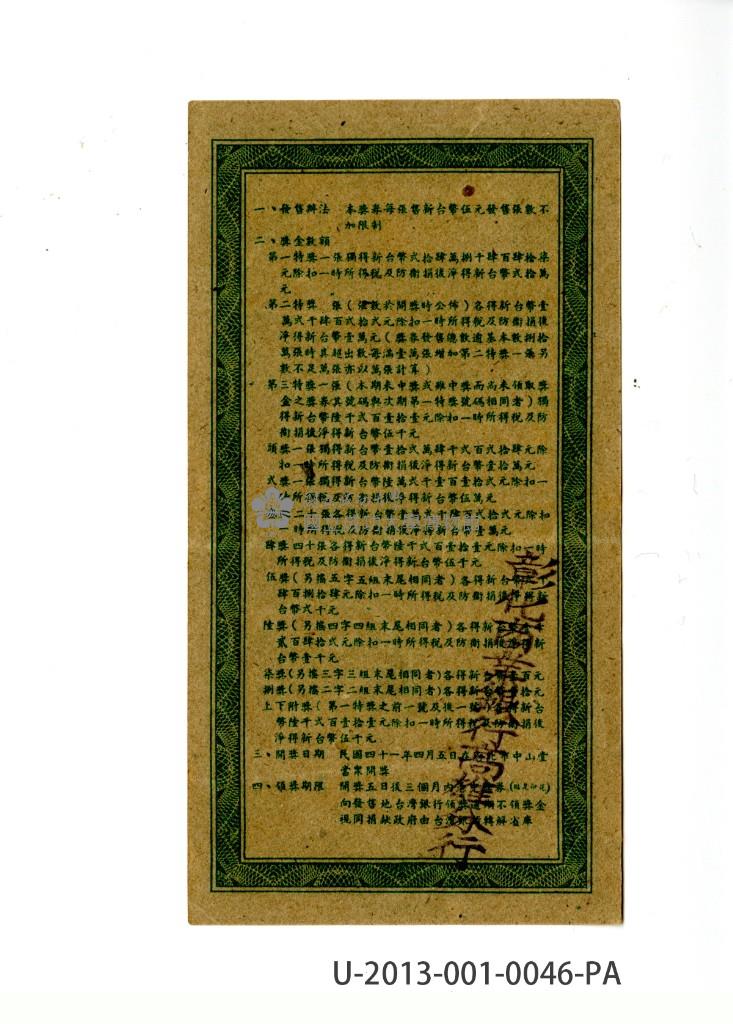 一、發售辦法 本獎券每張售新台幣伍元發售張數不
加限制
二、獎金數額
第一特獎一張獨得新台幣弍拾肆萬捌千肆百肆拾柒
元除扣一時所得稅及防衛捐後淨得新台幣弍拾萬
元
第二特獎 張(張數於開獎時公佈)各得新台幣壹
萬弍千肆百弍拾弍元除扣一時所得稅及防衛捐後
淨得新台幣壹萬元(獎券發售總數逾基本數捌拾
萬張時其超出數每滿壹萬張增加第二特獎一張另
數不足萬張亦以萬張計算)
第三特獎一張(本期未中獎或雖中獎而尚未領取獎
金之獎券其號碼與次期第一特獎號碼相同者)獨
得新台幣陸千弍百壹拾壹元除扣一時所得稅及防
衛捐後淨得新台幣伍千元
頭獎一張獨得新台幣壹拾弍萬肆千弍百弍拾肆元除
扣一時所得稅及防衛捐後淨得新台幣壹拾萬元
弍獎一張獨得新台幣陸萬弍千壹百壹拾弍元除扣一
時所得稅及防衛捐後淨得新台幣伍萬元
獎二十張各得新台幣壹萬弍千陸百弍拾弍元除扣
一時所得稅及防衛捐後淨得新台幣壹萬元
肆獎四十張各得新台幣陸千弍百壹拾壹元除扣一時
所得稅及防衛捐後淨得新台幣伍千元
伍獎(另搖五字五組末尾相同者)各得新台幣
肆百捌拾肆元除扣一時所得稅及防衛捐後淨得新
台幣弍千元
陸獎(另搖四字四組末尾相同者)各得新
貳百肆拾弍元除扣一時所得稅及防衛捐後淨得新
台幣壹千元
柒獎(另搖三字三組末尾相同者)各得新台幣壹百元
捌獎(另搖二字二組末尾相同者)各得新台幣 拾元
上下附獎(第一特獎之前一號及後一號)各得新台
幣陸千弍百壹拾壹元除扣一時所得稅及防衛捐後
淨得新台幣伍千元
三、開獎日期 民國四十一年四月五日在台北市中山堂
當眾開獎
四、領獎期限 開獎五日後三個月內 券
向發售地台灣銀行領獎逾期不領獎金
視同捐獻政府由台灣銀行轉解省庫
彰化商業銀行高雄分行
U-2013-001-0046-PA